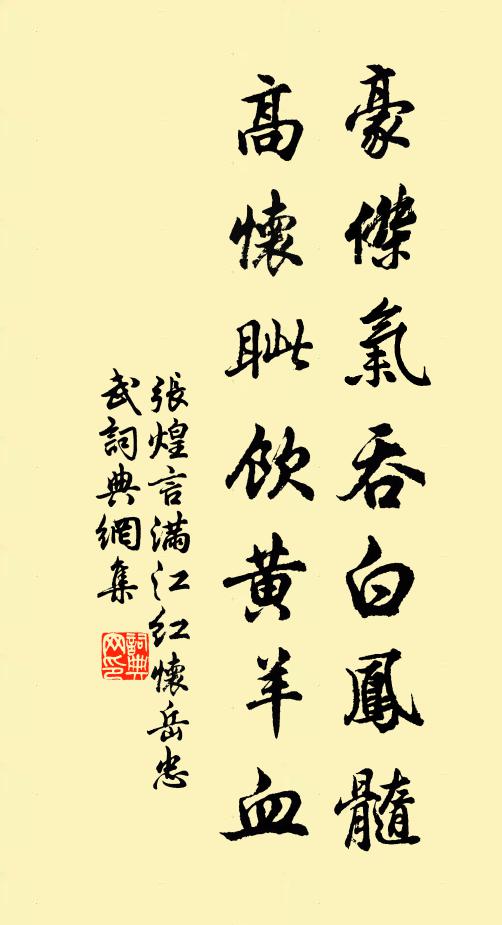 豪傑氣吞白鳳髓
高懷眦飲黃羊血
張煌言滿江红懷岳忠
武詞典網集
詞典网印